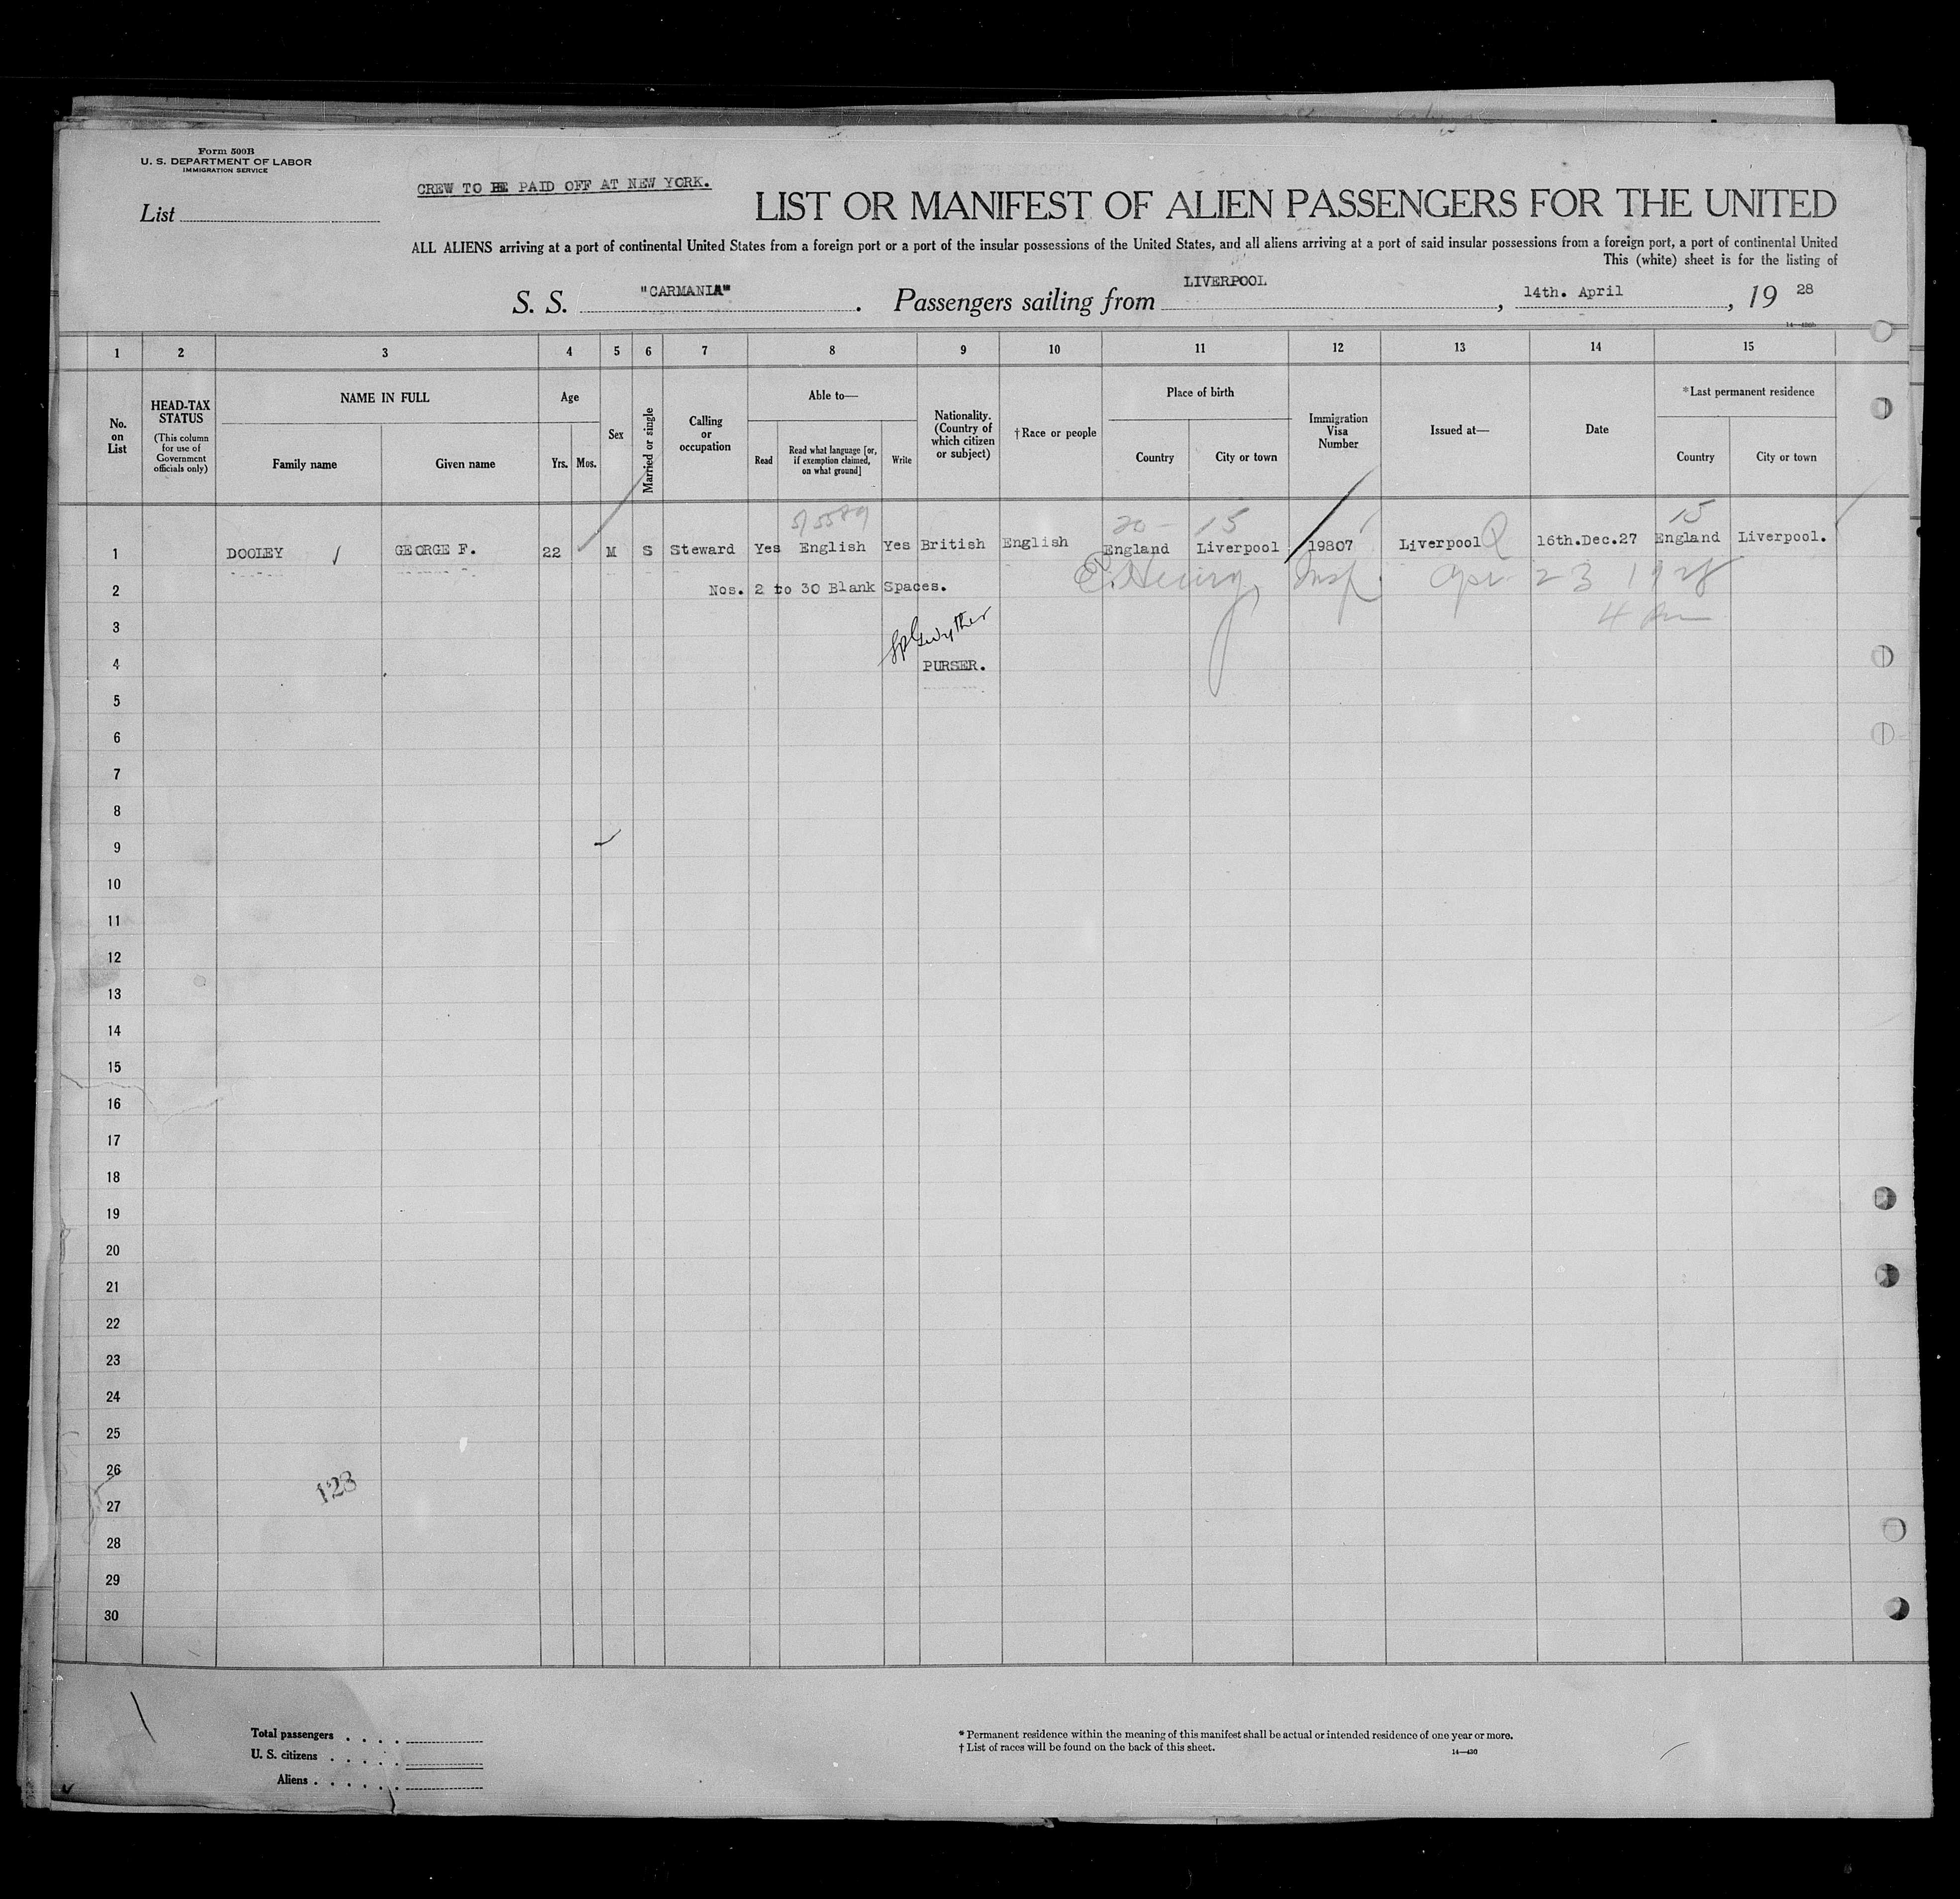 Form 500B
U. S. DEPARTMENT OF LABOR
IMMIGRATION SERVICE
CREW TO BE PAID OFF AT NEW YORK.
List
LIST OR MANIFEST OF ALIEN PASSENGERS FOR THE UNITED
ALL ALIENS arriving at a port of continental United States from a foreign port or a port of the insular possessions of the United States, and all aliens arriving at a port of said insular possessions from a foreign port, a port of continental United
This (white) sheet is for the listing of
S. S. "CARMANIA". Passengers sailing from LIVERPOOL, 14th. April, 19 28
1 2 3 4 5 6 7 8 9 10 11 12 13 14 15
No. on List
HEAD-TAX STATUS
(This column for use of Government officials only)
NAME IN FULL
Family name
Given name
Age
Yrs. Mos.
Sex
Married or single
Calling or occupation
Able to—
Read
Read what language [or, if exemption claimed, on what ground]
Write
Nationality. (Country of which citizen or subject)
†Race or people
Place of birth
Country
City or town
Immigration Visa Number
Issued at—
Date
*Last permanent residence
Country
City or town
20 - 15 15
1 DOOLEY GEORGE F. 22 M S Steward Yes English Yes British English England Liverpool 19807 Liverpool 16th.Dec.27 England Liverpool.
2 Nos. 2 to 30 Blank Spaces. Henry, Insp. Apr 23 1928
3 4
4 PURSER.
5
6
7
8
9
10
11
12
13
14
15
16
17
18
19
20
21
22
23
24
25
26
128
27
28
29
30
Total passengers
U. S. citizens
Aliens
* Permanent residence within the meaning of this manifest shall be actual or intended residence of one year or more.
† List of races will be found on the back of this sheet.
14—430